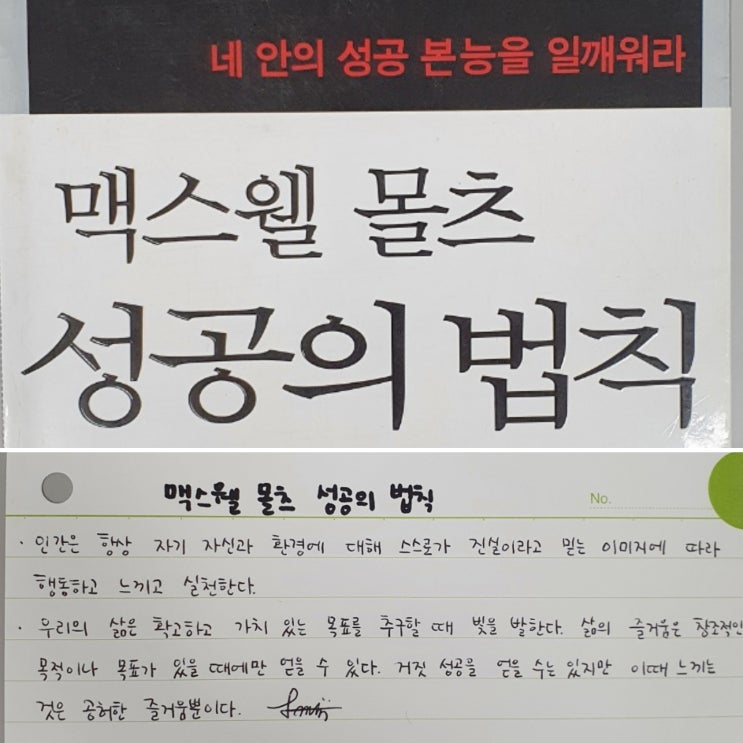 네 안의 성공 본능을 일깨워라
맥스웰 몰츠
성공의 법칙
맥스웰 몰츠 성공의 법칙
No.
· 인간은 항상 자기 자신과 환경에 대해 스스로가 진실이라고 믿는 이미지에 따라
행동하고 느끼고 실천한다.
· 우리의 삶은 확고하고 가치 있는 목표를 추구할 때 빛을 발한다. 삶의 즐거움은 창조적인
목적이나 목표가 있을 때에만 얻을 수 있다. 거짓 성공을 얻을 수는 있지만 이때 느끼는
것은 공허한 즐거움뿐이다.